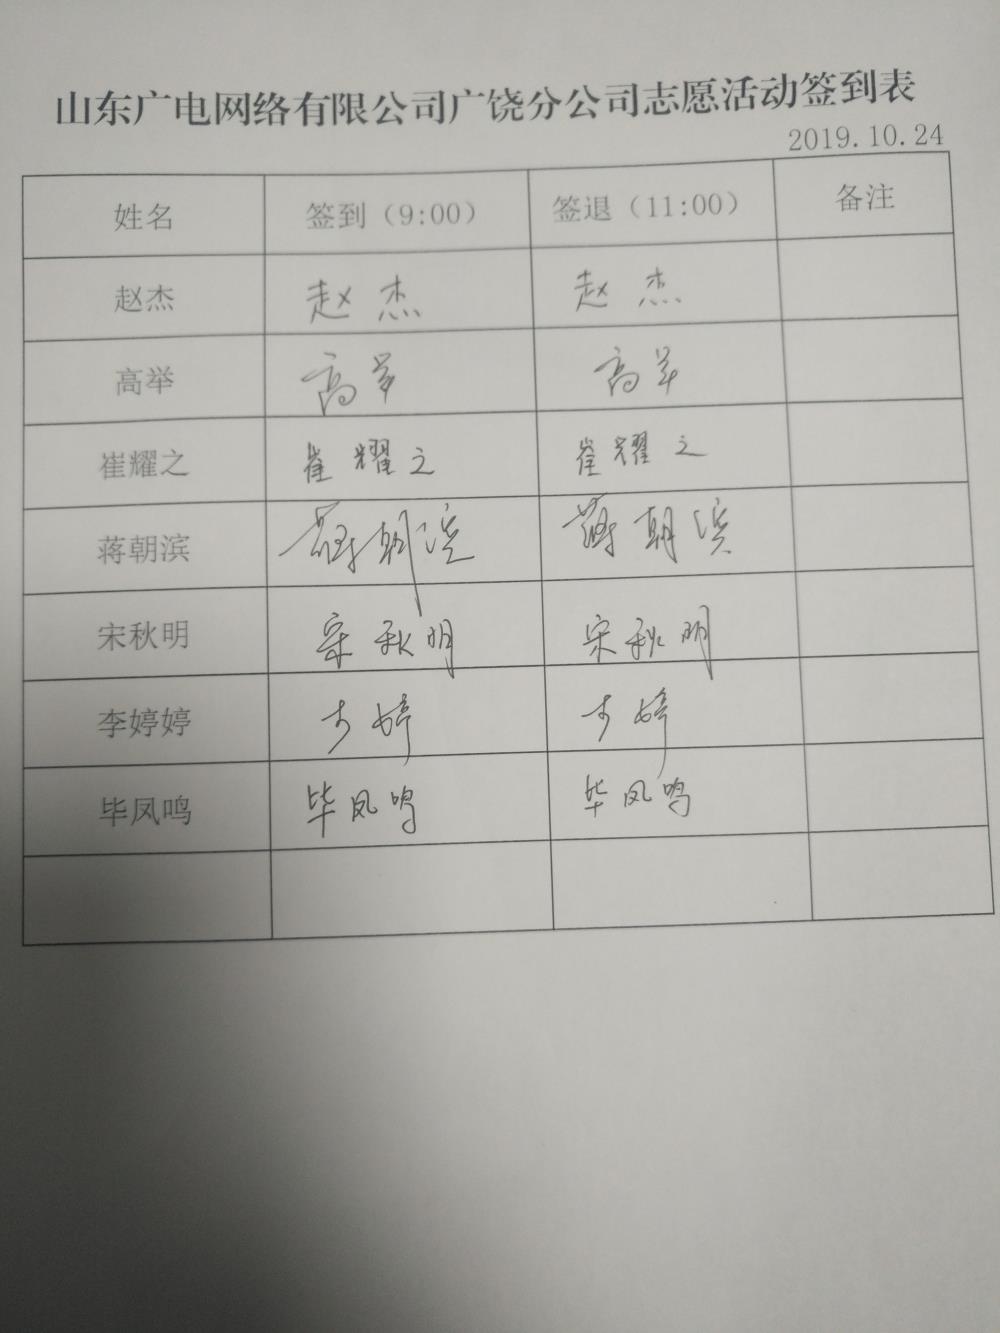 山东广电网络有限公司广饶分公司志愿活动签到表
2019.10.24
姓名 签到（9:00） 签退（11:00） 备注
赵杰 赵杰 赵杰
高举 高举 高举
崔耀之 崔耀之 崔耀之
蒋朝滨 蒋朝滨 蒋朝滨
宋秋明 宋秋明 宋秋明
李婷婷
毕凤鸣 毕凤鸣 毕凤鸣